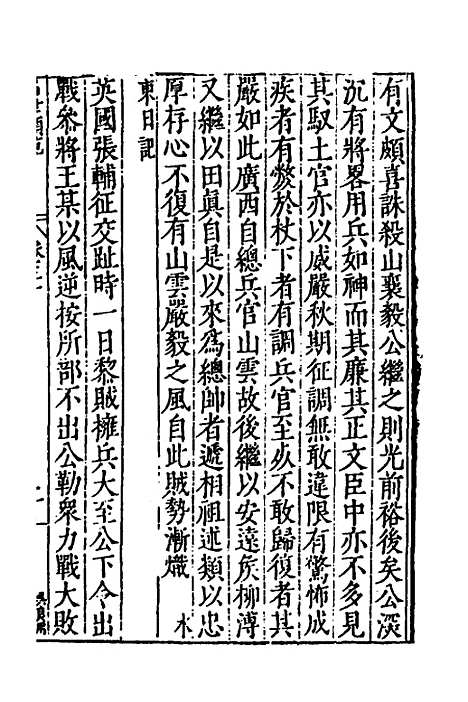 有文頗喜誅殺山襄毅公繼之則光前裕後矣公深
沉有將畧用兵如神而其廉其正文臣中亦不多見
其馭土官亦以威嚴秋期征調無敢違限有驚怖成
疾者有斃於杖下者有調兵官至必不敢歸復者其
嚴如此廣西自總兵官山雲故後繼以安遠矦柳溥
又繼以田眞自是以來為總帥者遞相祖述類以忠
厚存心不復有山雲嚴毅之風自此賊勢漸熾 水
東日記
英國張輔征交趾時一日黎賊擁兵大至公下令出
戰叅將王某以風逆按所部不出公勒衆力戰大敗